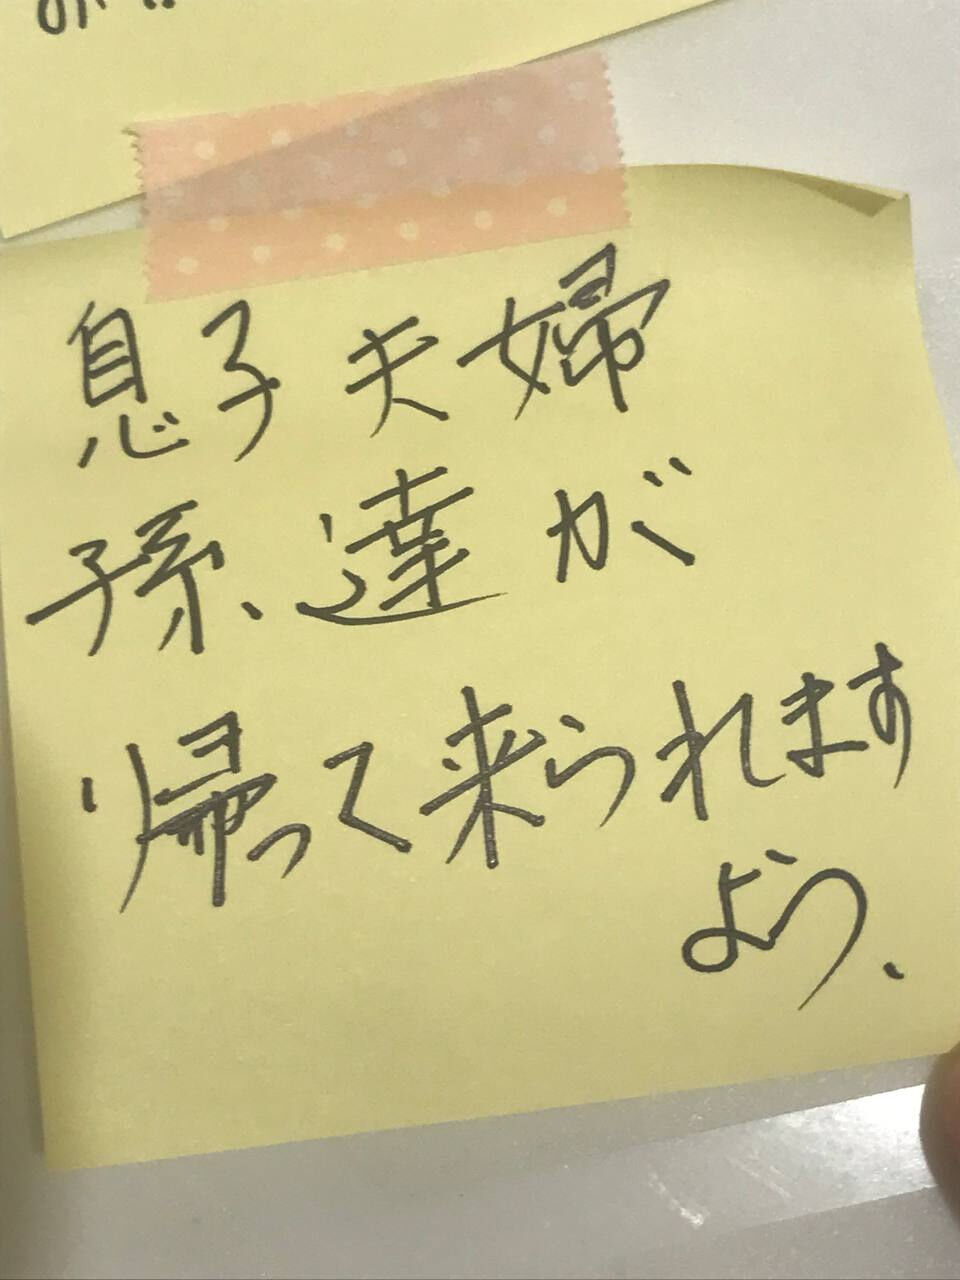 息子夫婦
孫達が
帰って来られます
よう、